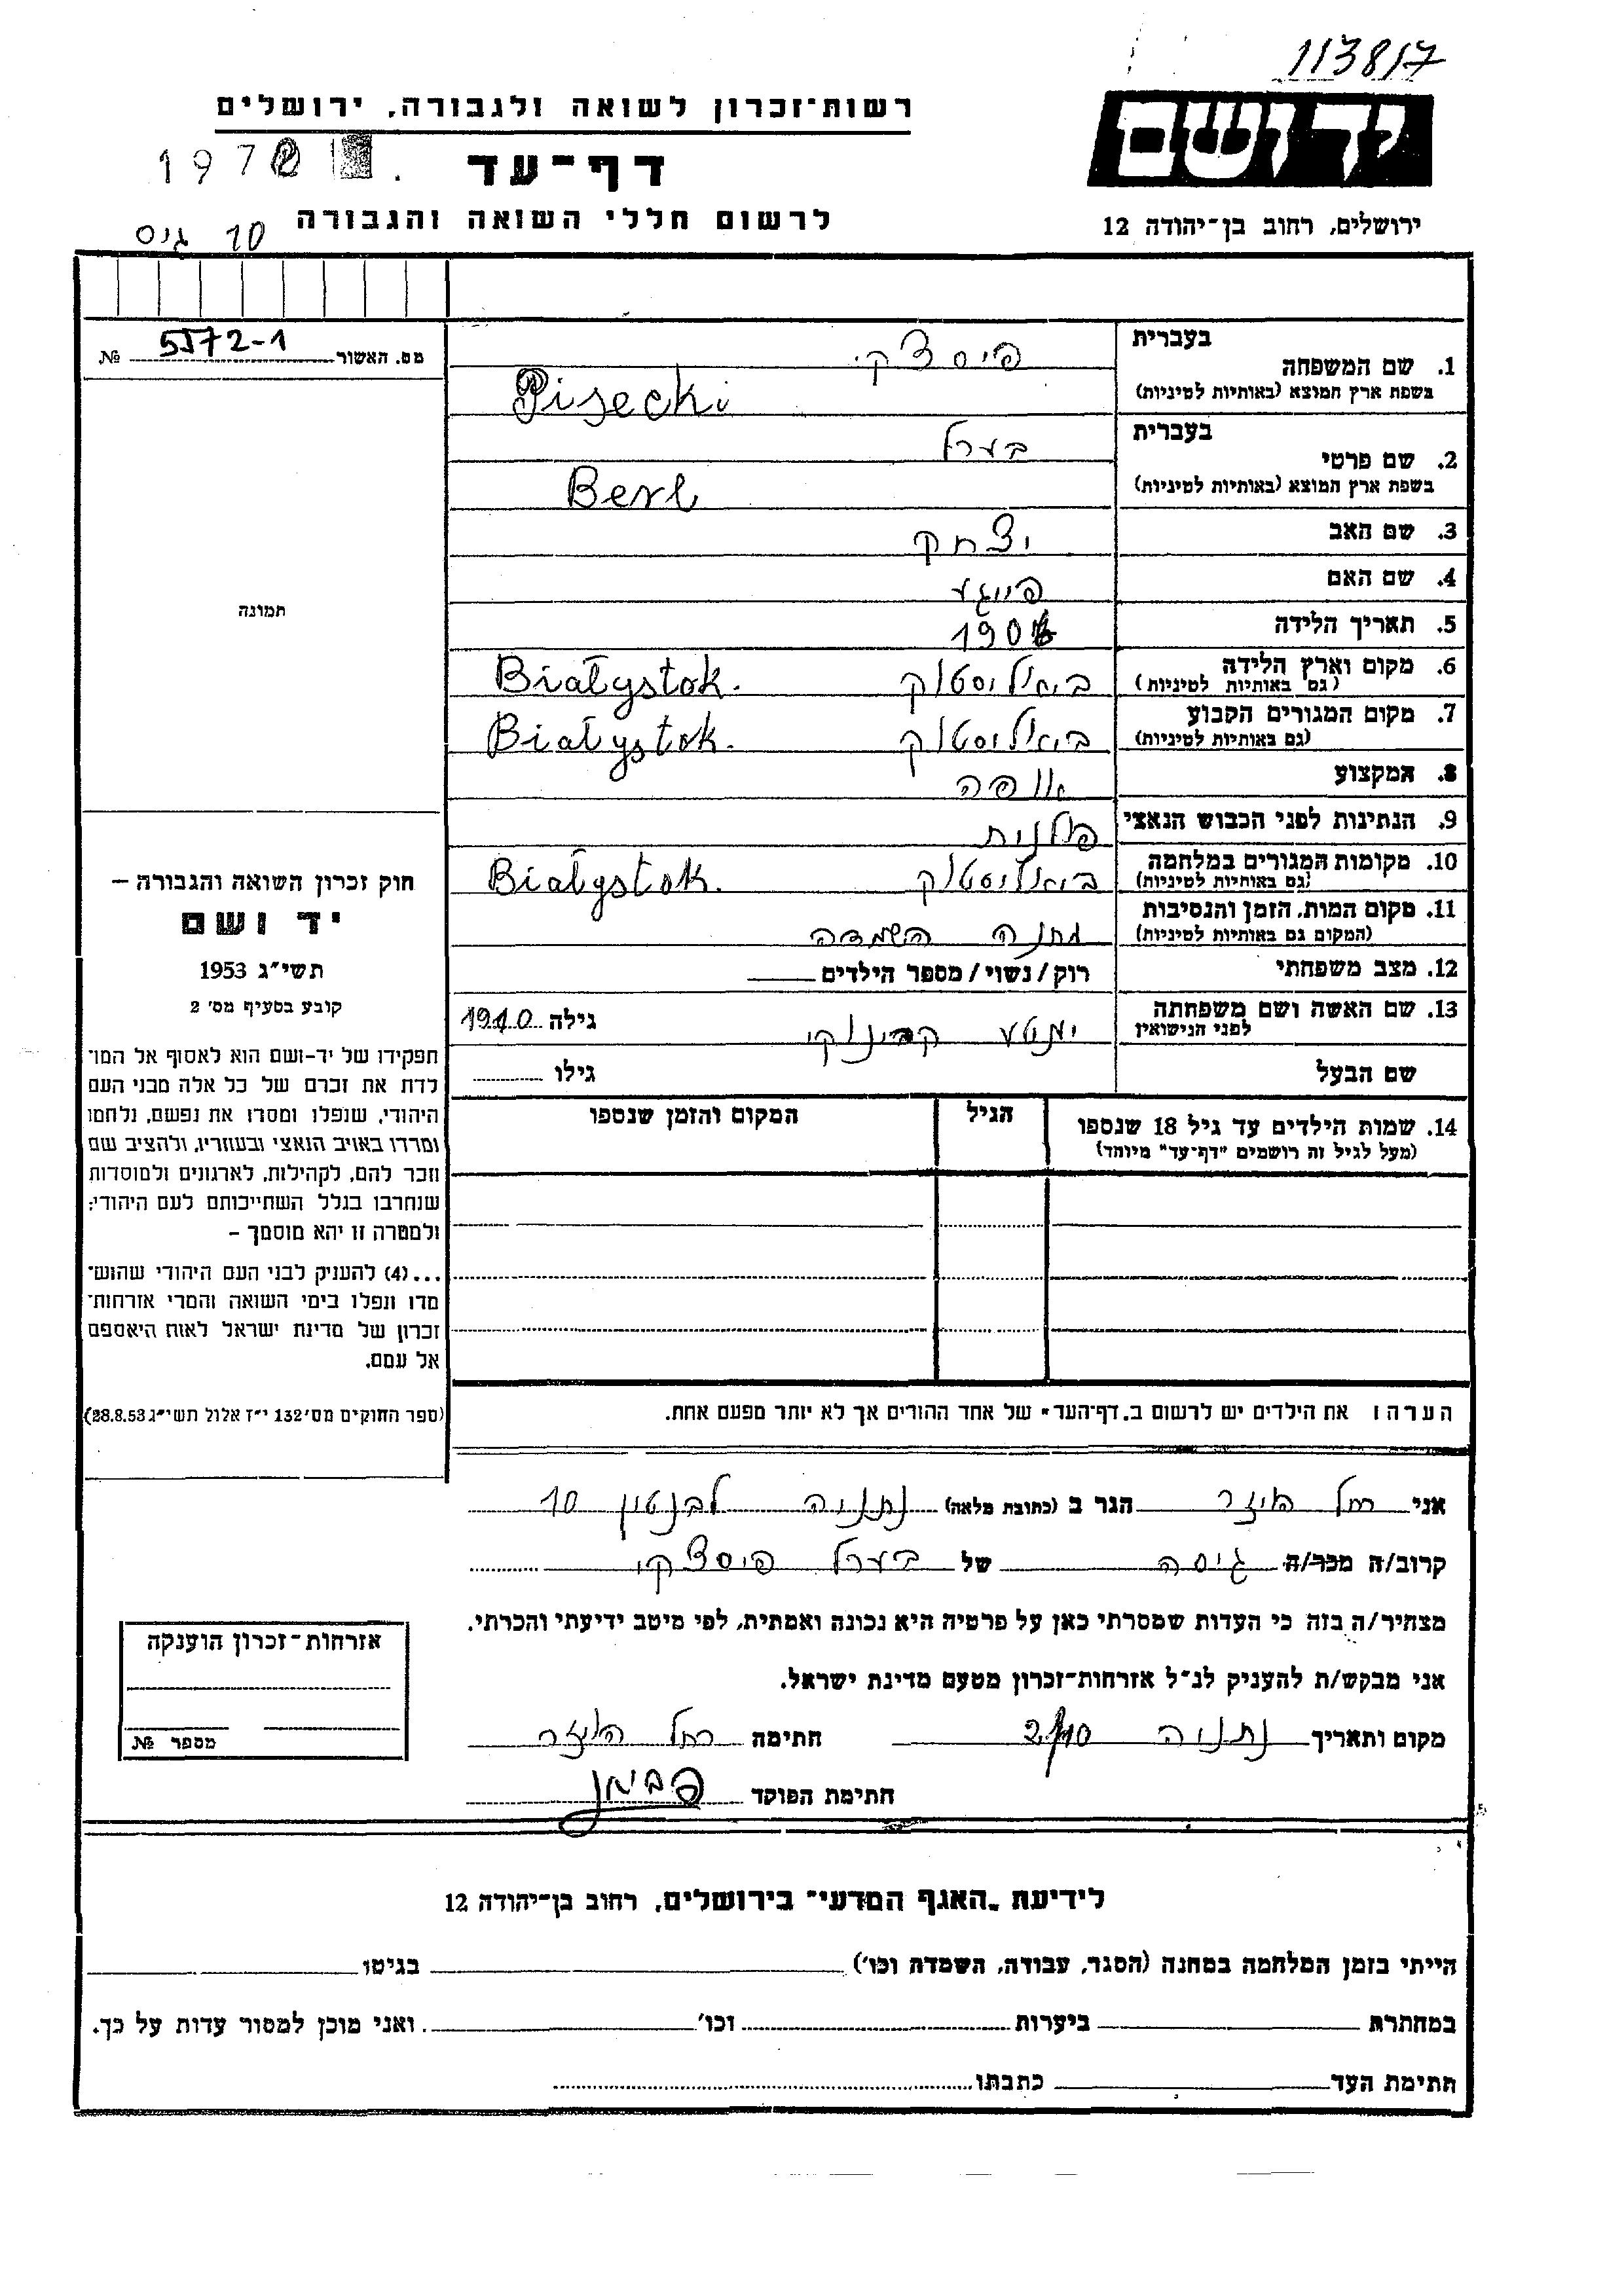 113817
רשות-זכרון לשואה ולגבורה, ירושלים
יד ושם
197
דף-עד
לרשום חללי השואה והגבורה
ירושלים, רחוב בן-יהודה 12
10 גיס
מס. האשור 5572-1 №
תמונה
חוק זכרון השואה והגבורה –
יד ושם
תשי"ג 1953
קובע בסעיף מס' 2
תפקידו של יד-ושם הוא לאסוף אל המו-
לדת את זכרם של כל אלה מבני העם
היהודי, שנפלו ומסרו את נפשם, נלחמו
ומרדו באויב הנאצי ובעוזריו, ולהציב שם
וזכר להם, לקהילות, לארגונים ולמוסדות
שנחרבו בגלל השתייכותם לעם היהודי;
ולמטרה זו יהא מוסמך –
...(4) להעניק לבני העם היהודי שהוש-
מדו ונפלו בימי השואה והמרי אזרחות-
זכרון של מדינת ישראל לאות היאספם
אל עמם.
(ספר החוקים מס' 132 י"ז אלול תשי"ג 28.8.53)
בעברית פיסצקי
1. שם המשפחה
בשפת ארץ המוצא (באותיות לטיניות) Pisecki
בעברית בערל
2. שם פרטי
בשפת ארץ המוצא (באותיות לטיניות) Berl
3. שם האב יצחק
4. שם האם פייגע
5. תאריך הלידה
6. מקום וארץ הלידה ביאליסטוק Białystok.
(גם באותיות לטיניות)
7. מקום המגורים הקבוע ביאליסטוק Białystok.
(גם באותיות לטיניות)
8. המקצוע אופה
9. הנתינות לפני הכבוש הנאצי פולנית
10. מקומות המגורים במלחמה ביאליסטוק Białystok.
(גם באותיות לטיניות)
11. מקום המות, הזמן והנסיבות מחנה השמדה
(המקום גם באותיות לטיניות)
12. מצב משפחתי רוק/נשוי/מספר הילדים
13. שם האשה ושם משפחתה גילה 1910
לפני הנישואין
שם הבעל גילו
14. שמות הילדים עד גיל 18 שנספו הגיל המקום והזמן שנספו
(מעל לגיל זה רושמים "דף-עד" מיוחד)
הערה: את הילדים יש לרשום ב"דף-העד" של אחד ההורים אך לא יותר מפעם אחת.
אני רחל הגר ב (כתובת מלאה) נתניה לבנטין 10
קרוב/ה מכר/ה גיסה של בערל פיסצקי
מצהיר/ה בזה כי העדות שמסרתי כאן על פרטיה היא נכונה ואמתית, לפי מיטב ידיעתי והכרתי.
אני מבקש/ת להעניק לנ"ל אזרחות-זכרון מטעם מדינת ישראל.
מקום ותאריך נתניה חתימה רחל
חתימת הפוקד
אזרחות-זכרון הוענקה
מספר №
לידיעת "האגף המדעי" בירושלים, רחוב בן-יהודה 12
הייתי בזמן המלחמה במחנה (הסגר, עבודה, השמדת וכו') בגיטו
במחתרת ביערות וכו' ואני מוכן למסור עדות על כך.
חתימת העד כתבתו